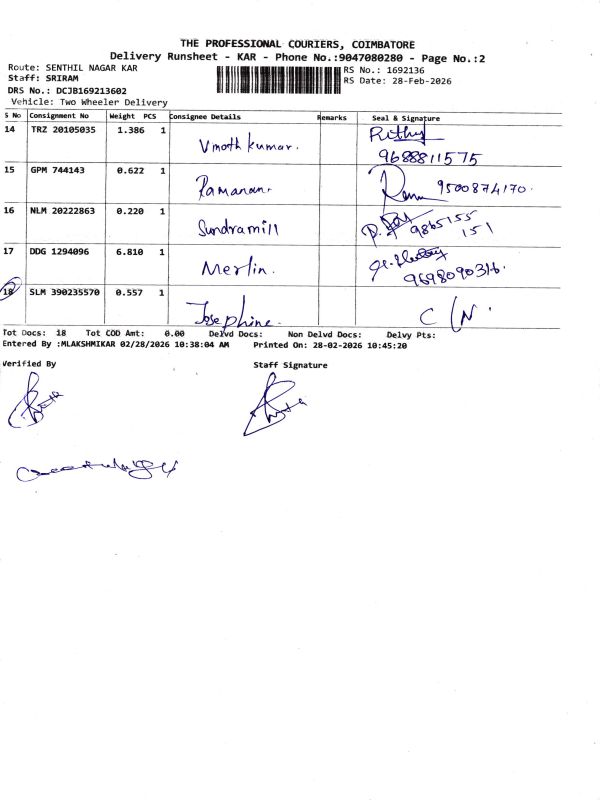 THE PROFESSIONAL COURIERS, COIMBATORE
Delivery Runsheet - KAR - Phone No.:9047080280 - Page No.:2
Route: SENTHIL NAGAR KAR
RS No.: 1692136
Staff: SRIRAM
RS Date: 28-Feb-2026
DRS No.: DCJB169213602
Vehicle: Two Wheeler Delivery
S No Consignment No Weight PCS Consignee Details Remarks Seal & Signature
14 TRZ 20105035 1.386 1 Vinoth kumar.
9688811575
15 GPM 744143 0.622 1 Ramanan. 9500874170.
16 NLM 20222863 0.220 1 Sundramill 9865155
151
17 DDG 1294096 6.810 1 Merlin.
9698090316.
18 SLM 390235570 0.557 1 Josephine. C/N.
Tot Docs: 18 Tot COD Amt: 0.00 Delvd Docs: Non Delvd Docs: Delvy Pts:
Entered By :MLAKSHMIKAR 02/28/2026 10:38:04 AM Printed On: 28-02-2026 10:45:20
Verified By Staff Signature